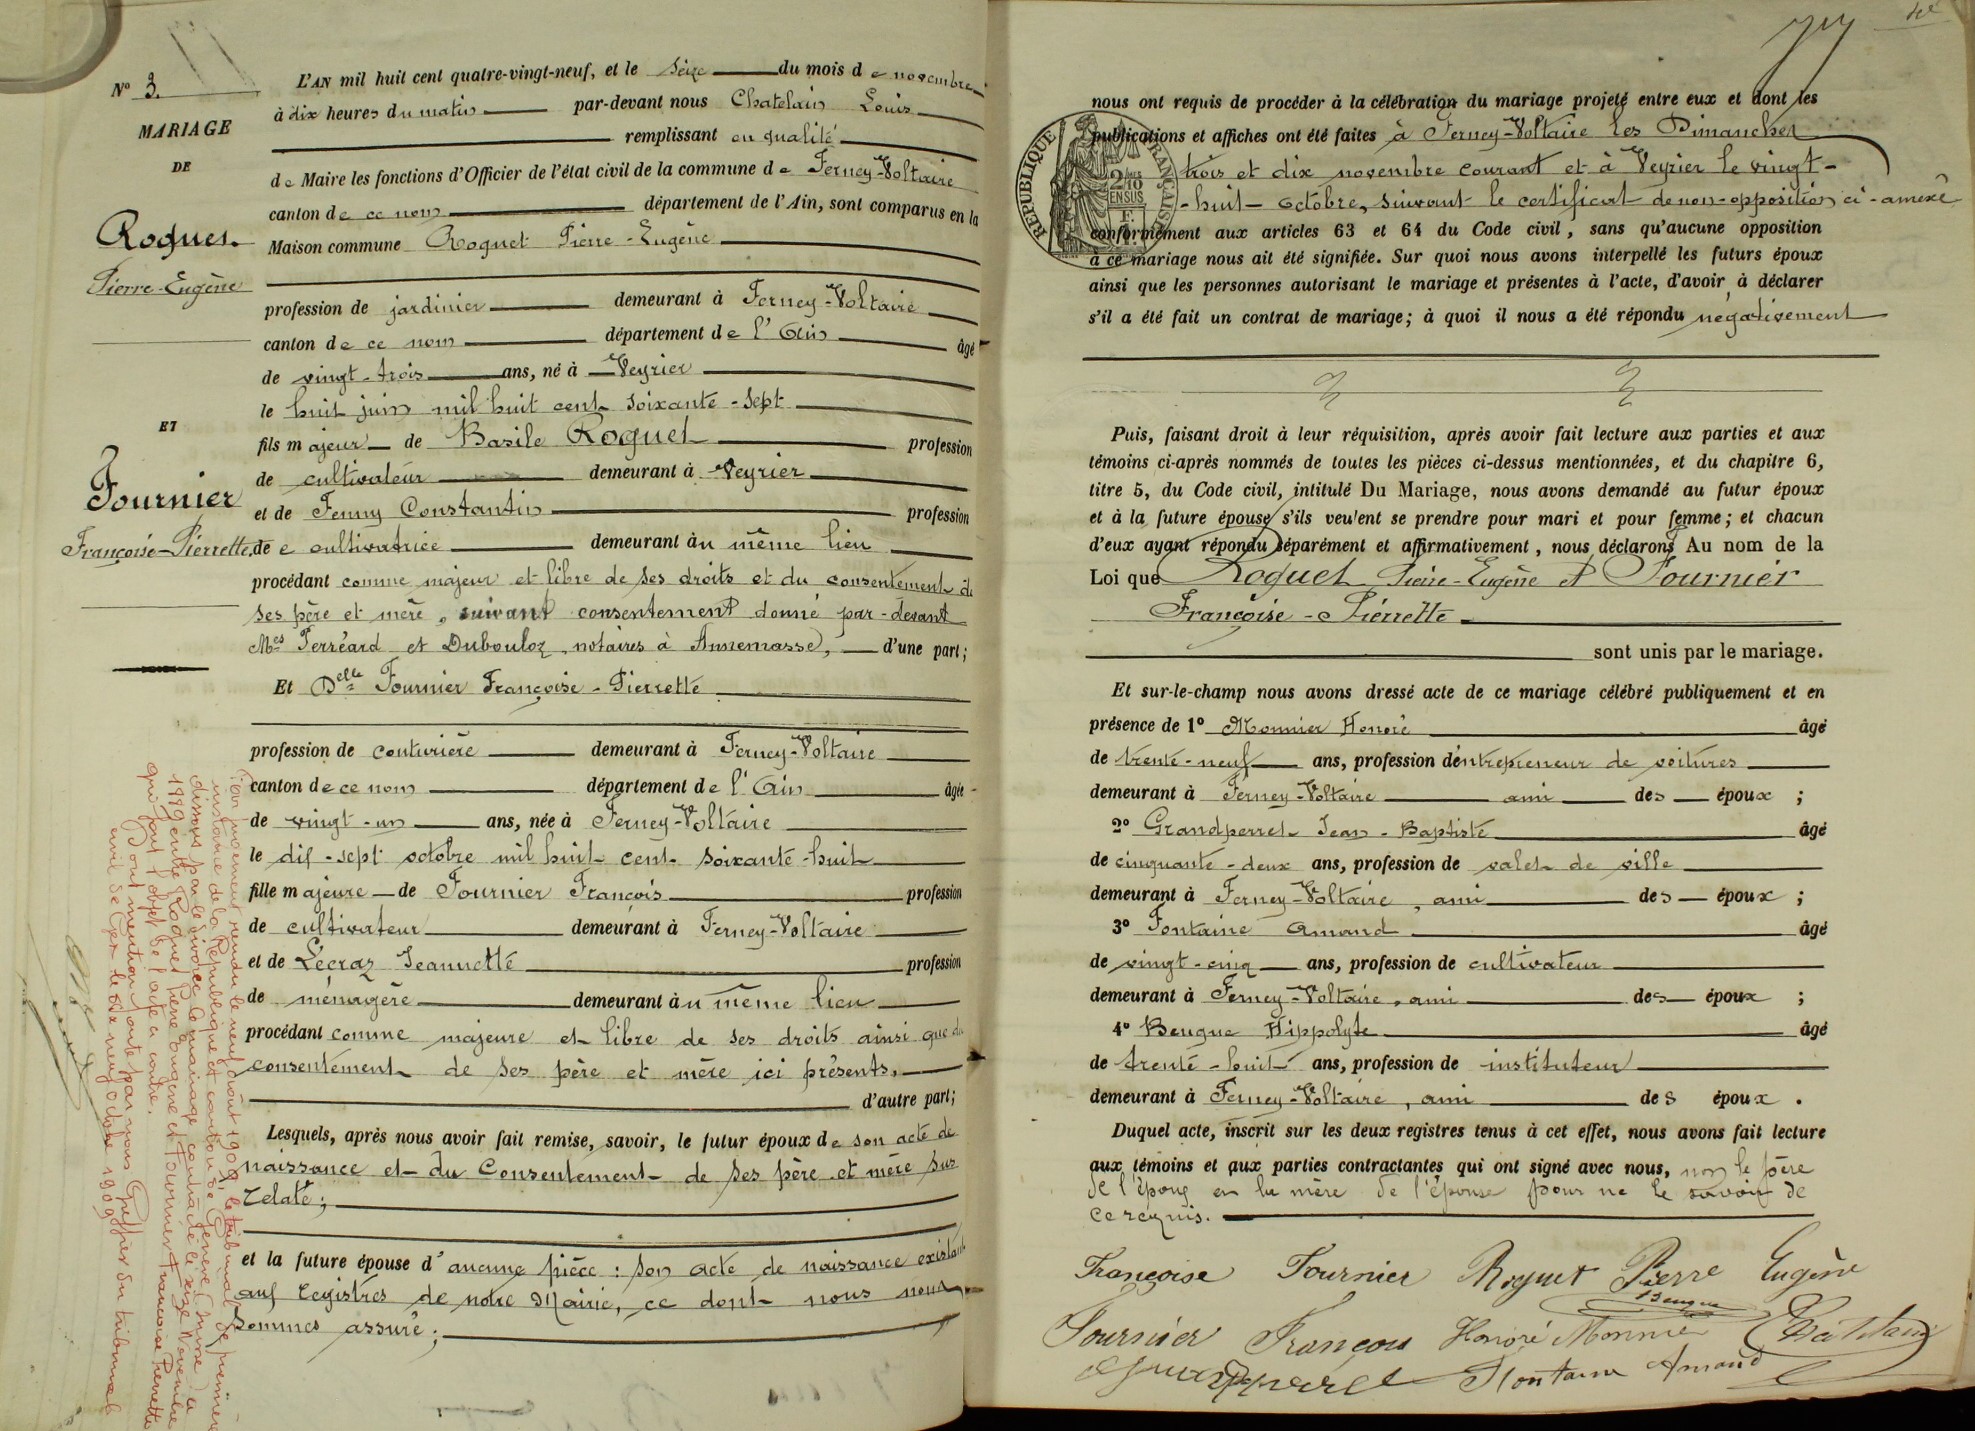 N° 3.
MARIAGE
DE
Roques.
Pierre-Eugène
ET
Fournier
Françoise-Pierrette,
L'AN mil huit cent quatre-vingt-neuf, et le seize du mois de novembre
à dix heures du matin par-devant nous Chatelain Louis
remplissant en qualité
de Maire les fonctions d'Officier de l'état civil de la commune de Ferney-Voltaire
canton de ce nom département de l'Ain, sont comparus en la
Maison commune Roquet Pierre-Eugène
profession de jardinier demeurant à Ferney-Voltaire
canton de ce nom département de l'Ain âgé
de vingt-trois ans, né à Veyrier
le huit juin mil huit cent soixante-sept
fils majeur de Basile Roquet profession
de cultivateur demeurant à Veyrier
et de Fenny Constantin profession
de cultivatrice demeurant au même lieu
procédant comme majeur et libre de ses droits et du consentement de
ses père et mère, suivant consentement donné par-devant
Mes Perréard et Dubouloz, notaires à Annemasse, d'une part;
Et Delle Fournier Françoise-Pierrette
profession de couturière demeurant à Ferney-Voltaire
canton de ce nom département de l'Ain âgée
de vingt-un ans, née à Ferney-Voltaire
le dix-sept octobre mil huit cent soixante-huit
fille majeure de Fournier François profession
de cultivateur demeurant à Ferney-Voltaire
et de Lécraz Jeannette profession
de ménagère demeurant au même lieu
procédant comme majeure et libre de ses droits ainsi que du
consentement de ses père et mère ici présents,
d'autre part;
Lesquels, après nous avoir fait remise, savoir, le futur époux de son acte de
naissance et du Consentement de ses père et mère sus
relaté;
et la future épouse d'aucune pièce : son acte de naissance existant
aux registres de notre Mairie, ce dont nous nous
sommes assuré;
Par jugement rendu le neuf août 1909 le tribunal de première
instance de la République et canton de Genève (Suisse) a
dissous par le divorce le mariage contracté le seize Novembre
1889 entre Roquet Pierre Eugène et Fournier Françoise Pierrette
qui fait l'objet de l'acte ci contre.
Dont mention faite par nous Greffier du tribunal
civil de Gex le dix neuf octobre 1909
nous ont requis de procéder à la célébration du mariage projeté entre eux et dont les
publications et affiches ont été faites à Ferney-Voltaire les Dimanches
trois et dix novembre courant et à Veyrier le vingt-
-huit octobre, suivant le certificat de non-opposition ci-annexé
conformément aux articles 63 et 64 du Code civil, sans qu'aucune opposition
à ce mariage nous ait été signifiée. Sur quoi nous avons interpellé les futurs époux
ainsi que les personnes autorisant le mariage et présentes à l'acte, d'avoir à déclarer
s'il a été fait un contrat de mariage; à quoi il nous a été répondu négativement
RÉPUBLIQUE FRANÇAISE
2/10 EN SUS
Puis, faisant droit à leur réquisition, après avoir fait lecture aux parties et aux
témoins ci-après nommés de toutes les pièces ci-dessus mentionnées, et du chapitre 6,
titre 5, du Code civil, intitulé Du Mariage, nous avons demandé au futur époux
et à la future épouse s'ils veulent se prendre pour mari et pour femme; et chacun
d'eux ayant répondu séparément et affirmativement, nous déclarons Au nom de la
Loi que Roquet Pierre-Eugène et Fournier
Françoise-Pierrette
sont unis par le mariage.
Et sur-le-champ nous avons dressé acte de ce mariage célébré publiquement et en
présence de 1° Monnier Honoré âgé
de trente-neuf ans, profession d'entrepreneur de voitures
demeurant à Ferney-Voltaire ami des époux ;
2° Grandperret Jean-Baptiste âgé
de cinquante-deux ans, profession de valet de ville
demeurant à Ferney-Voltaire, ami des époux ;
3° Fontaine Amand âgé
de vingt-cinq ans, profession de cultivateur
demeurant à Ferney-Voltaire, ami des époux ;
4° Beugue Hippolyte âgé
de trente-huit ans, profession de instituteur
demeurant à Ferney-Voltaire, ami des époux .
Duquel acte, inscrit sur les deux registres tenus à cet effet, nous avons fait lecture
aux témoins et aux parties contractantes qui ont signé avec nous, non le père
de l'époux en la mère de l'épouse pour ne le savoir de
ce requis.
Françoise Fournier Roquet Pierre Eugène
Beugue
Fournier François Honoré Monnier Chatelain
Fontaine Amand